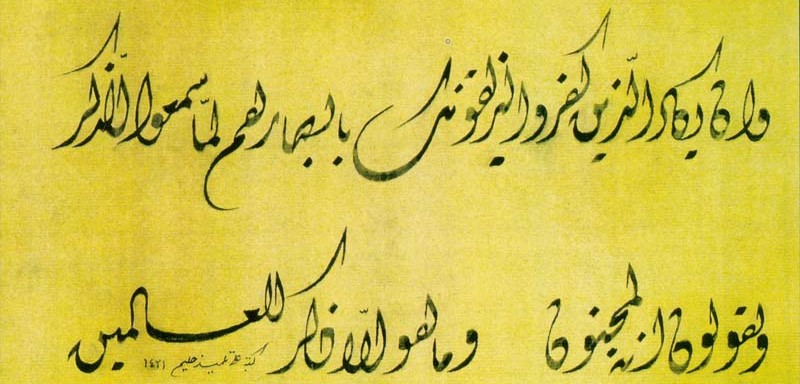 وان يكاد الذين كفروا ليزلقونك بابصارهم لمّا سمعوا الذكر
ويقولون انه لمجنون وما هو الّا ذكر للعالمين
١٤٢١